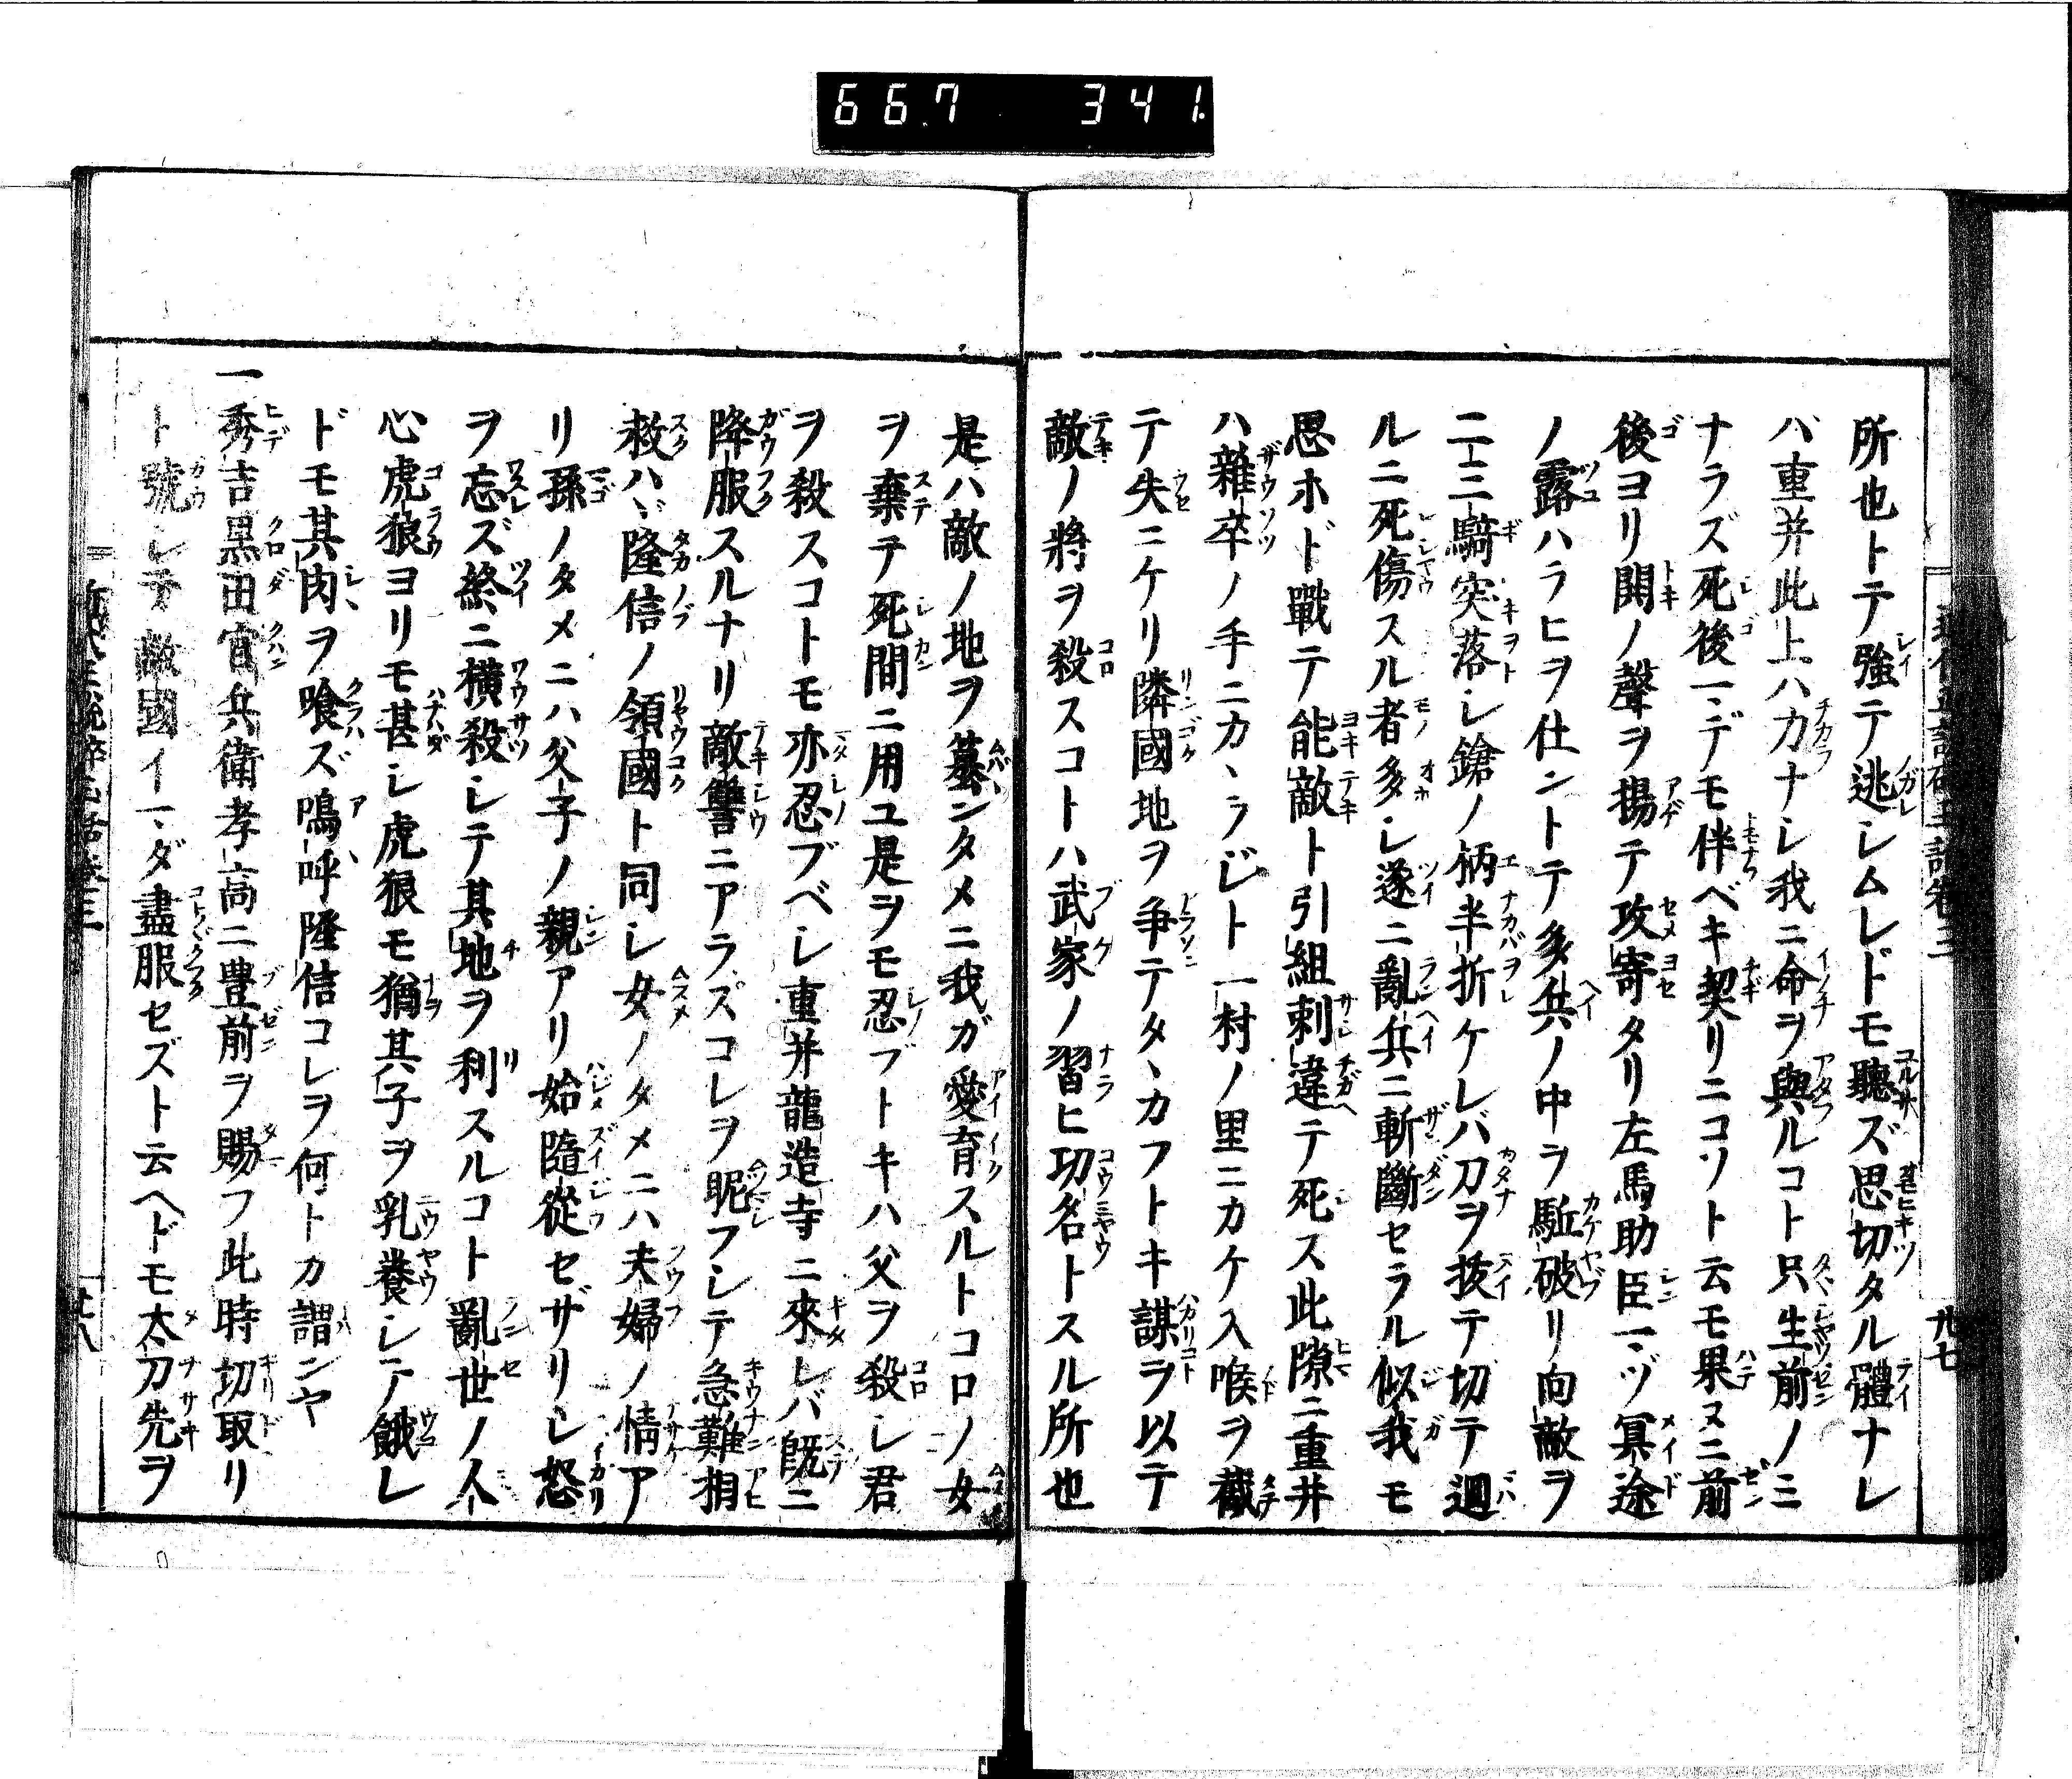 667 341.
所也トテ強テ逃シムレドモ聽ズ思切タル體ナレ
バ重并此上ハ力ナシ我ニ命ヲ與ルコト只生前ノミ
ナラズ死後マデモ伴ベキ契リニコソト云モ果ヌニ前
後ヨリ鬨ノ聲ヲ揚テ攻寄タリ左馬助臣マヅ冥途
ノ露ハラヒヲ仕ントテ多兵ノ中ヲ駈破リ向敵ヲ
二三騎突落シ鎗ノ柄半折ケレバ刀ヲ拔テ切テ廻
ルニ死傷スル者多シ遂ニ亂兵ニ斬斷セラル似我モ
思ホド戰テ能敵ト引組刺違テ死ス此隙ニ重并
ハ雜卒ノ手ニカヽラジト一村ノ里ニカケ入喉ヲ截
テ失ニケリ隣國地ヲ爭テタヽカフトキ謀ヲ以テ
敵ノ將ヲ殺スコトハ武家ノ習ヒ功名トスル所也
是ハ敵ノ地ヲ墓ンタメニ我ガ愛育スルトコロノ女
ヲ棄テ死間ニ用ユ是ヲモ忍ブトキハ父ヲ殺シ君
ヲ殺スコトモ亦忍ブベシ重并龍造寺ニ來レバ既ニ
降服スルナリ敵讐ニアラズコレヲ眤フシテ急難相
救ハヾ隆信ノ領國ト同シ女ノタメニハ夫婦ノ情ア
リ孫ノタメニハ父子ノ親アリ始隨從セザリシ怒
ヲ忘ズ終ニ橫殺シテ其地ヲ利スルコト亂世ノ人
心虎狼ヨリモ甚シ虎狼モ猶其子ヲ乳養シテ餓レ
ドモ其肉ヲ喰ズ嗚呼隆信コレヲ何トカ謂ンヤ
一秀吉黒田官兵衛孝高ニ豊前ヲ賜フ此時切取リ
ト號シテ敵國イマダ盡服セズト云ヘドモ太刀先ヲ